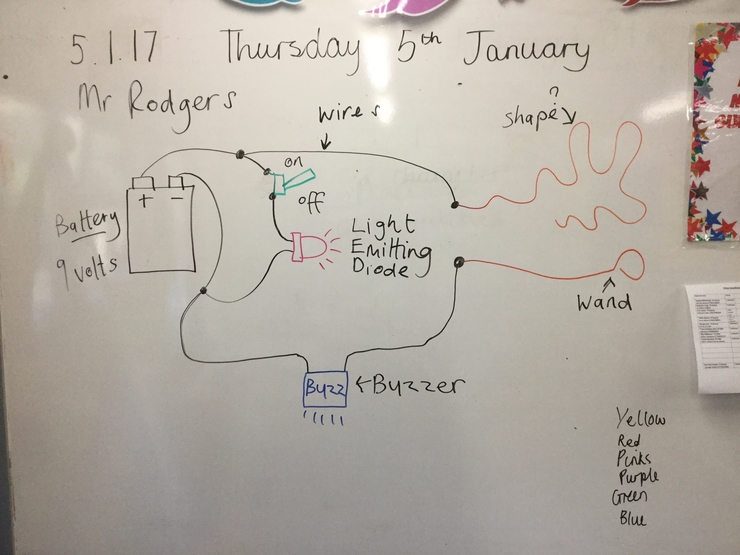 5.1.17 Thursday 5th January
Mr Rodgers
wires
?
shape
on
off
+ −
Battery
9 volts
Light
Emitting
Diode
Wand
Buzz
←Buzzer
Yellow
Red
Pinks
Purple
Green
Blue